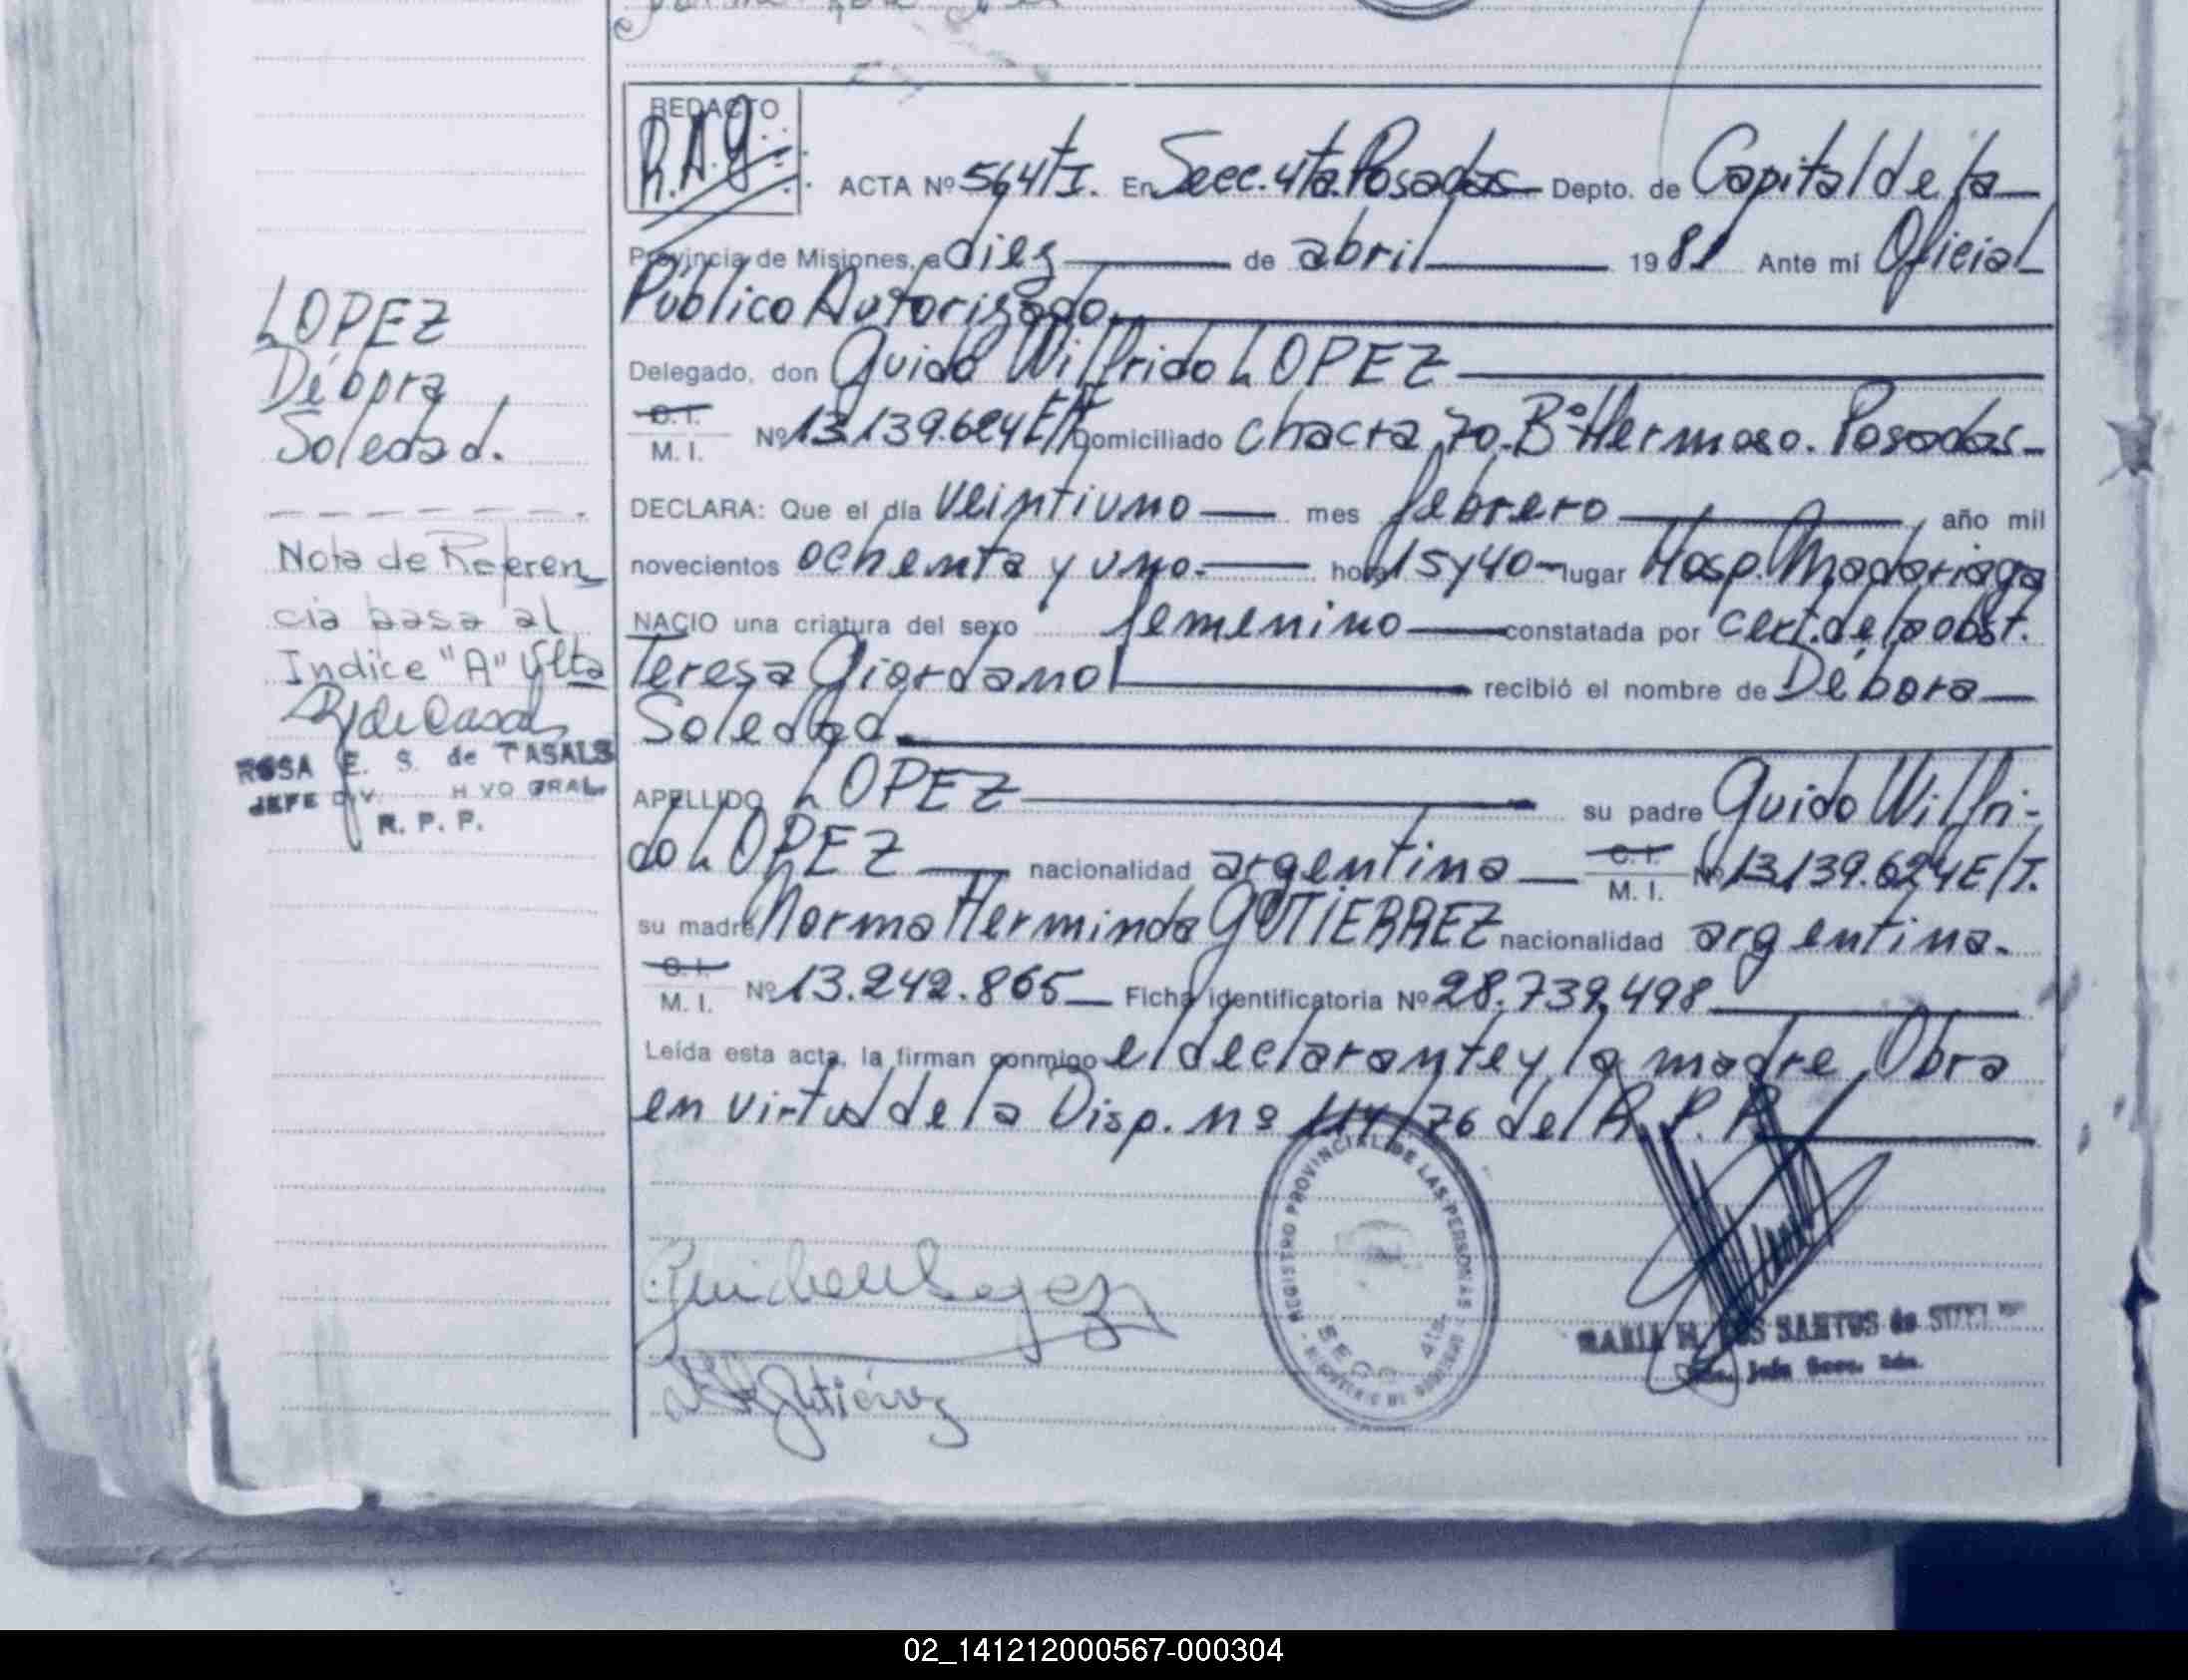 REDACTO
R.A.G.
ACTA Nº 564/T I. En Secc. 4ta. Posadas Depto. de Capital de la
Provincia de Misiones, a diez de abril 1981 Ante mi Oficial
Público Autorizado
Delegado, don Guido Wilfrido LOPEZ
C. I.
M. I. Nº 13.139.624 E/T Domiciliado chacra 70. Bº Hermoso. Posadas
DECLARA: Que el día veintiuno mes febrero, año mil
novecientos ochenta y uno. hora 15 y 40 lugar Hosp. Madariaga
NACIO una criatura del sexo femenino constatada por cert. de la obst.
Teresa Giordano recibió el nombre de Débora
Soledad.
APELLIDO LOPEZ su padre Guido Wilfri-
do LOPEZ nacionalidad argentina C. I.
M. I. Nº 13.139.624 E/T.
su madre Norma Herminda GUTIERREZ nacionalidad argentina.
C. I.
M. I. Nº 13.242.865 Ficha identificatoria Nº 28.739.498
Leída esta acta, la firman conmigo el declarante y la madre. Obra
en virtud de la Disp. nº 114/76 del R. P. P.
LOPEZ
Débora
Soledad.
Nota de Referen
cia pasa al
Indice "A" Ulta
ROSA E. S. de CASALS
JEFE DIV. GRAL.
R. P. P.
REGISTRO PROVINCIAL DE LAS PERSONAS
SECC. 4ta.
Gutiérrez
MARIA M. DOS SANTOS de
Jefe Secc.
02_141212000567-000304